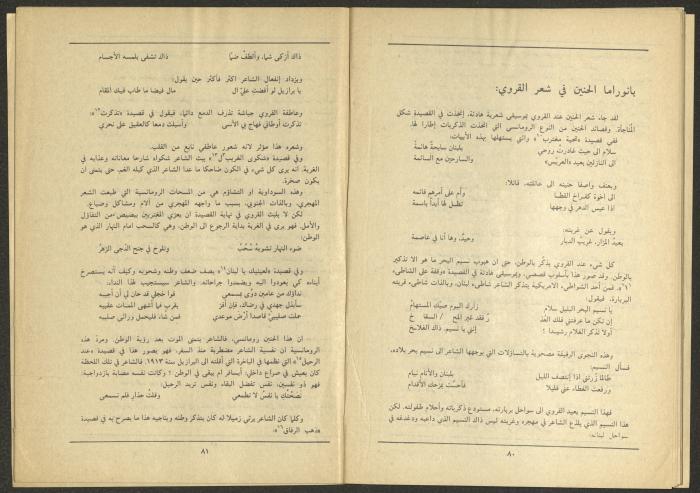 بانوراما الحنين في شعر القروي:
لقد جاء شعر الحنين عند القروي بموسيقى شعرية هادئة، إتخذت في القصيدة شكل
المناجاة. وقصائد الحنين من النوع الرومانسي التي اتخذت الذكريات إطارا لها.
ففي قصيدة «تحية مغترب» والتي يستهلها بهذه الأبيات:
سلام الى حيث غادرت روحي بلبنان سابحة هائمة
الى النازلين بعيد «العريس» والسارحين مع السائمة
ويعنف واصفا حنينه الى عائلته، قائلا:
الى اخوة كفراخ القطا وأم على أمرهم قائمه
اذا عبس الدهر في وجهها تظل لها أبدا باسمة
ويقول عن غربته:
بعيد المزار، غريب الديار وحيد، وها أنا في عاصمة
كل شيء عند القروي يذكر بالوطن، حتى ان هبوب نسيم البحر ما هو الا تذكير
بالوطن. وقد صور هذا بأسلوب قصصي، وبموسيقى هادئة في القصيدة «وقفة على الشاطىء
. فمن أحد الشواطىء الاميركية يتذكر الشاعر شاطىء لبنان، وبالذات شاطىء قريته
البربارة، فيقول:
يا نسيم البحر البليل سلام زارك اليوم صبك المستهام
إن تكن ما عرفتني فلك العذ ر فقد غير المح السقام
أولا تذكر الغلام رشيدا ؟ إنني يا نسيم، ذاك الغلام
وهذه النجوى الرقيقة مصحوبة بالتساؤلات التي يوجهها الشاعر الى نسيم بحر بلاده،
فسأل النسيم:
طالما زرتني اذا إنتصف الليل بلبنان والأنام نيام
ورفعت الغطاء عني قليلا فأحست بمزحك الأقدام
فهذا النسيم يعيد القروي الى سواحل بربارته، مستودع ذكرياته وأحلام طفولته. لكن
هذا النسيم الذي يلذع الشاعر في مهجره وغربته ليس ذاك النسيم الذي داعبه ودغدغه في
سواحل لبنانه:
٨٠
ذاك أزكى شما، وألطف ضما ذاك تشفى بلمسه الأجسام
ويزداد إنفعال الشاعر اكثر فأكثر حين يقول:
يا برازيل لو أفضت علي ال مال فيضا ما طاب فيك المقام
وعاطفة القروي جياشة تذرف الدمع دائما، فيقول في قصيدة «تذكرت»:
تذكرت أوطاني فهاج في الأسى وأسبلت دمعا كالعقيق على نحري
وشعره هذا مؤثر لانه شعور عاطفي نابع من القلب.
وفي قصيدة «شكوى الغريب» يبث الشاعر شكواه شارحا معاناته وعذابه في
الغربة. أنه يرى كل شيء في الكون ضاحكا ما عدا الشاعر الذي كبله الغم، حتى يتمنى أن
يكون صخرة.
وهذه السوداوية أو التشاؤم هي من المسحات الرومانسية التي طبعت الشعر
المهجري، وبالذات الجنوبي، بسبب ما واجهه المهجري من آلام ومشاكل وضياع.
لكن لا يلبث القروي في نهاية القصيدة ان يعزي المغتربين ببصيص من التفاؤل
والأمل. فهو يرى في الغربة بداية الرجوع الى الوطن، وهي كالسحب امام النهار الذي هو
الوطن:
ضوء النهار تشوبه سحب وتلوح في جنح الدجى الزهر
وفي قصيدة «لعينيك يا لبنان» يصف ضعف وطنه وشحوبه وكيف أنه يستصرخ
أبناءه كي يعودوا اليه ويضمدوا جراحاته. والشاعر سيستجيب لهذا النداء.
نداؤك من عامين دوى بمسمعي فوا خجلي قد حان لي أن أجيبه
سأبذل جهدي في رضاك، فإن أفز بقرب فيا أشهى الممات عقيبه
حملت صليبي قاصدا أرض موعدي فمن شاء فليحمل ورائي صليبه
ان هذا الحنين رومانسي، فالشاعر يتمنى الموت بعد رؤية الوطن. ومرد هذه
الرومانسية ان نفسية الشاعر مضطربة منذ السفر، فهو يصور هذا في قصيدة «عند
الرحيل» التي نظمها في الباخرة التي أقلته الى البرازيل سنة ١٩١٣ فالشاعر في تلك اللحظة
كان يعيش في صراع داخلي، أيسافر ام يبقى في الوطن ؟ وكانت نفسه مصابة بازدواجية.
فهو ذو نفسين، نفس تفضل البقاء ونفس تريد الرحيل:
نصحتك يا نفس لا تطمعي وقلت حذار فلم تسمعي
وكلما كان الشاعر يرثي زميلا له كان يتذكر وطنه ويناجيه هذا ما يصرح به في قصيدة
«ذهب الرفاق»:
٨١